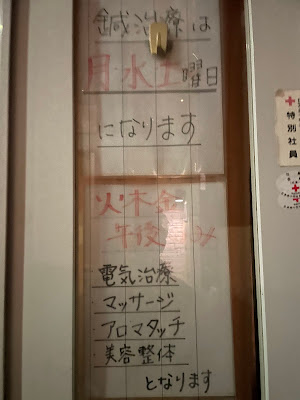 鍼治療は
月水土曜日
になります
火木金
午後のみ
電気治療
マッサージ
アロマタッチ
美容整体
となります
特別社員